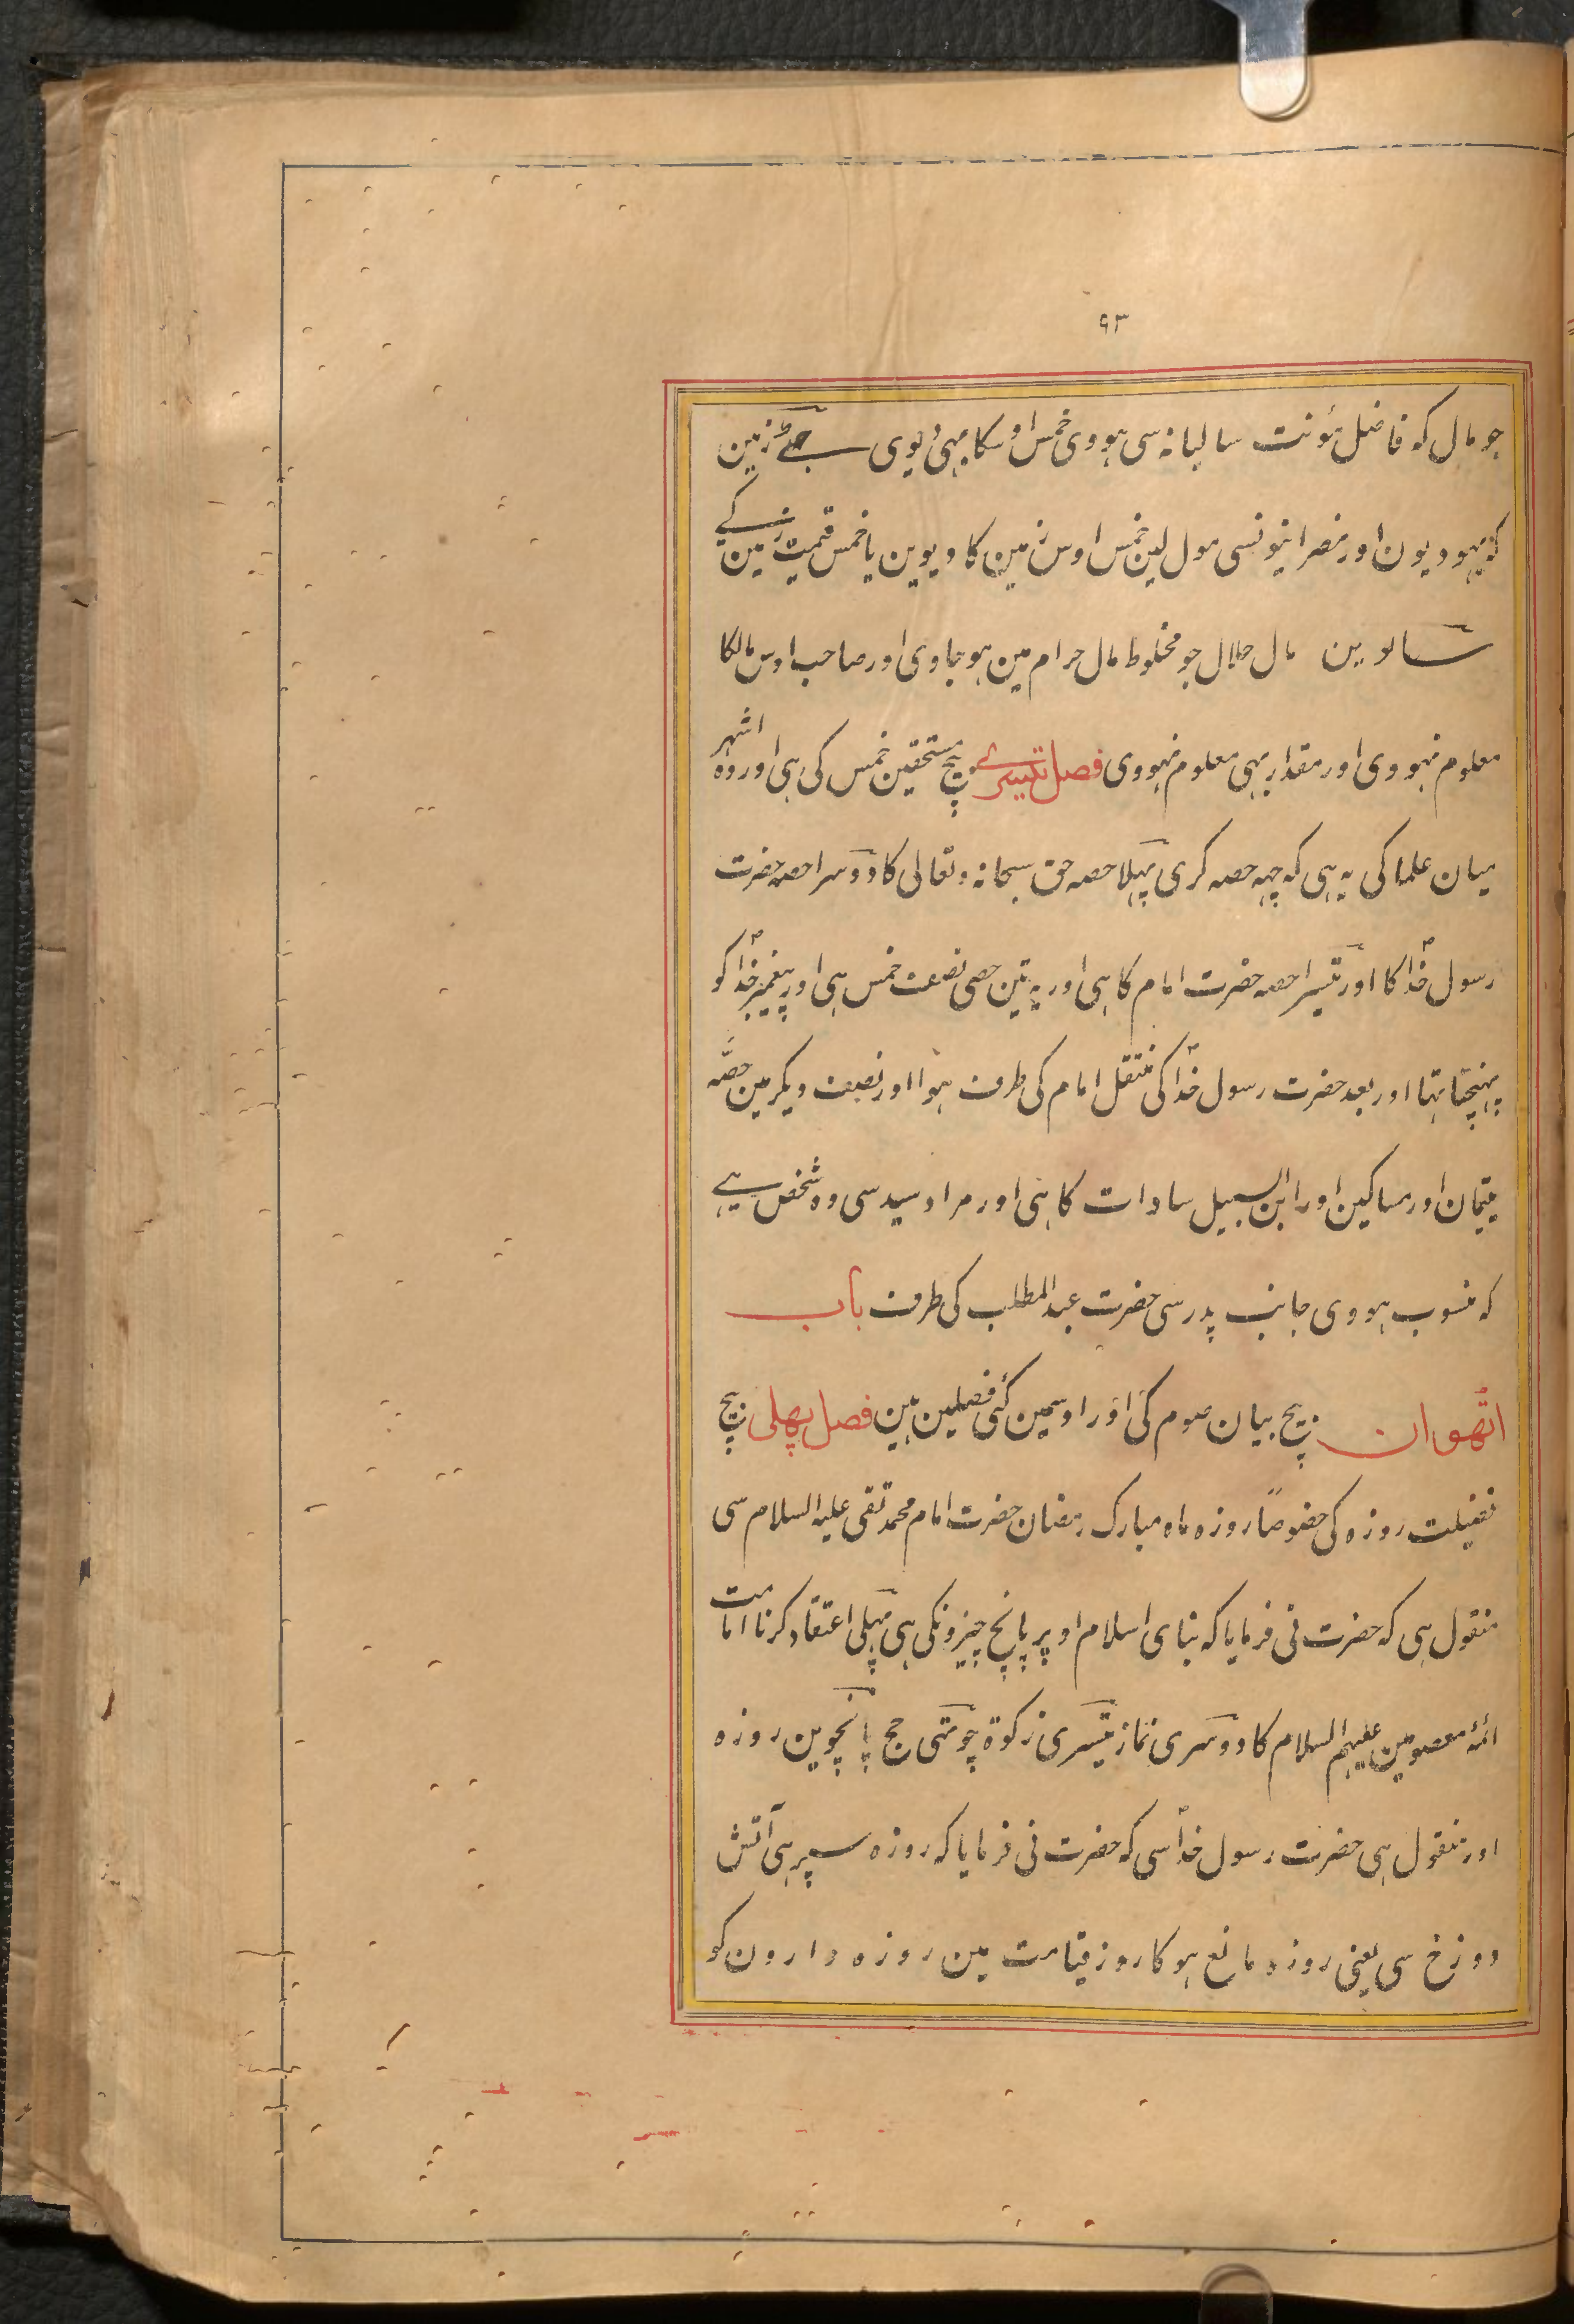 ۹۳
جو مال که فاضل مؤنت سالیانه سی هووی خمس اوسکا بهی دیوی چهٹے زمین
که یهودیون اور نصرانیونسی مول لین خمس اوس زمین کا دیوین یا خمس قیمت زمین کے
ساتوین مال حلال جو مخلوط مال حرام مین هو جاوی اور صاحب اوس مالکا
معلوم نهووی اور مقدار بهی معلوم نهووی فصل تیسرے بیچ مستحقین خمس کی هی اور وه اشهر
میان علما کی یه هی که چهه حصه کری پهلا حصه حق سبحانه و تعالی کا دوسرا حصه حضرت
رسول خداؐ کا اور تیسرا حصه حضرت امام کا هی اور یه تین حصی نصف خمس هی اور پیغمبر خداؐ کو
پهنچتا تها اور بعد حضرت رسول خداؐ کی منتقل امام کی طرف هوا اور نصف دیکر مین حصّه
یتیمان اور مساکین اور ابن السبیل سادات کا هی اور مراد سید سی وه شخص هے
که منسوب هووی جانب پدر سی حضرت عبد المطلب کی طرف باب
اٹهوان بیچ بیان صوم کی اور اوسمین کئی فصلین هین فصل پهلی بیچ
فضیلت روزه کی خصوصاً روزه ماه مبارک رمضان حضرت امام محمد تقی علیه السلام سی
منقول هی که حضرت نی فرمایا که بنای اسلام اوپر پانچ چیزونکی هی پهلی اعتقاد کرنا امامت
ائمۀ معصومین علیهم السلام کا دوسری نماز تیسری زکوة چوتهی حج پانچوین روزه
اور منقول هی حضرت رسول خداؐ سی که حضرت نی فرمایا که روزه سپر هی آتش
دوزخ سی یعنی روزه مانع هوکا روز قیامت مین روزه دارون کو